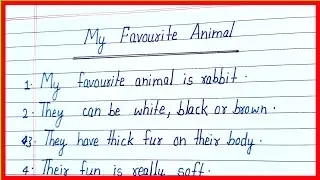 My Favourite Animal
1. My favourite animal is rabbit.
2. They can be white, black or brown.
3. They have thick fur on their body.
4. Their fun is really soft.